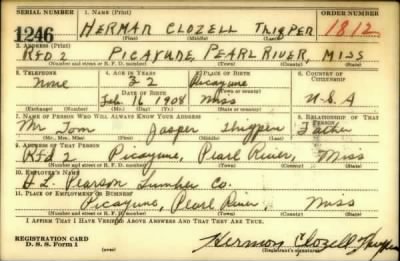 SERIAL NUMBER 1. NAME (Print) ORDER NUMBER
1246 HERMAN CLOZELL THIGPEN 1812
(First) (Middle) (Last)
2. ADDRESS (Print)
RFD 2 PICAYUNE, PEARL RIVER, MISS
(Number and street or R. F. D. number) (Town) (County) (State)
3. TELEPHONE 4. AGE IN YEARS 5. PLACE OF BIRTH 6. COUNTRY OF CITIZENSHIP
None 32 Picayune
DATE OF BIRTH (Town or county)
Feb. 1908 Miss U.S.A
(Exchange) (Number) (Mo.) (Day) (Yr.) (State or country)
7. NAME OF PERSON WHO WILL ALWAYS KNOW YOUR ADDRESS 8. RELATIONSHIP OF THAT PERSON
Mr. Tom Jasper Thigpen Father
(Mr., Mrs., Miss) (First) (Middle) (Last)
9. ADDRESS OF THAT PERSON
Rfd 2 Picayune, Pearl River, Miss
(Number and street or R. F. D. number) (Town) (County) (State)
10. EMPLOYER'S NAME
Pearson Lumber Co.
11. PLACE OF EMPLOYMENT OR BUSINESS
Picayune, Pearl River, Miss
(Number and street or R. F. D. number) (Town) (County) (State)
I AFFIRM THAT I HAVE VERIFIED ABOVE ANSWERS AND THAT THEY ARE TRUE.
REGISTRATION CARD
D. S. S. Form 1 Herman Clozell Thigpen
(over) (Registrant's signature)